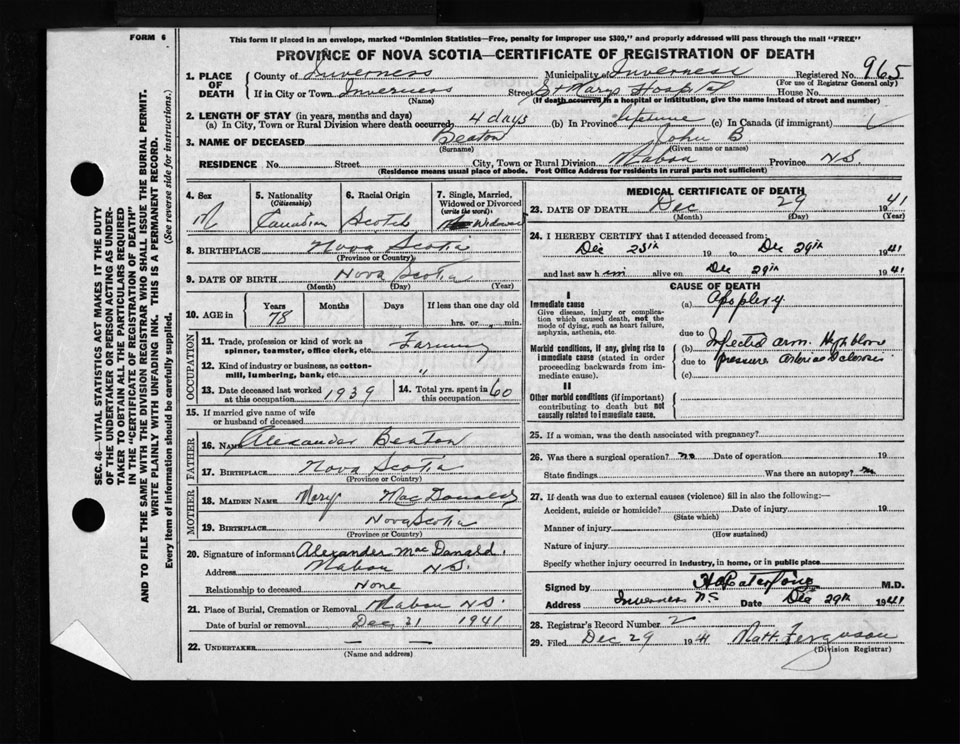 FORM 6
This form if placed in an envelope, marked "Dominion Statistics—Free, penalty for improper use $300," and properly addressed will pass through the mail "FREE"
PROVINCE OF NOVA SCOTIA—CERTIFICATE OF REGISTRATION OF DEATH
SEC. 46—VITAL STATISTICS ACT MAKES IT THE DUTY
OF THE UNDERTAKER OR PERSON ACTING AS UNDER-
TAKER TO OBTAIN ALL THE PARTICULARS REQUIRED
IN THE "CERTIFICATE OF REGISTRATION OF DEATH"
AND TO FILE THE SAME WITH THE DIVISION REGISTRAR WHO SHALL ISSUE THE BURIAL PERMIT.
WRITE PLAINLY WITH UNFADING INK. THIS IS A PERMANENT RECORD.
Every item of Information should be carefully supplied. (See reverse side for instructions.)
1. PLACE OF DEATH County of Inverness Municipality of Inverness Registered No. 965
(For use of Registrar General only)
If in City or Town Inverness Street St Marys Hospital House No.
(Name) (If death occurred in a hospital or institution, give the name instead of street and number)
2. LENGTH OF STAY (in years, months and days)
(a) In City, Town or Rural Division where death occurred 4 days (b) In Province lifetime (c) In Canada (if immigrant)
3. NAME OF DECEASED Beaton John B
(Surname) (Given name or names)
RESIDENCE No. Street City, Town or Rural Division Mabou Province N.S.
(Residence means usual place of abode. Post Office Address for residents in rural parts not sufficient)
4. Sex M
5. Nationality (Citizenship) Canadian
6. Racial Origin Scotch
7. Single, Married, Widowed or Divorced (write the word) Widower
8. BIRTHPLACE Nova Scotia
(Province or Country)
9. DATE OF BIRTH Nova Scotia
(Month) (Day) (Year)
10. AGE in Years 78 Months Days If less than one day old
hrs. or min.
OCCUPATION
11. Trade, profession or kind of work as spinner, teamster, office clerk, etc. Farming
12. Kind of industry or business, as cotton-mill, lumbering, bank, etc. "
13. Date deceased last worked at this occupation 1939
14. Total yrs. spent in this occupation 60
15. If married give name of wife or husband of deceased
FATHER
16. Name Alexander Beaton
17. Birthplace Nova Scotia
(Province or Country)
MOTHER
18. Maiden Name Mary MacDonald
19. Birthplace Nova Scotia
(Province or Country)
20. Signature of informant Alexander MacDonald.
Address Mabou N.S.
Relationship to deceased None
21. Place of Burial, Cremation or Removal Mabou N.S.
Date of burial or removal Dec 31 1941
22. UNDERTAKER — —
(Name and address)
MEDICAL CERTIFICATE OF DEATH
23. DATE OF DEATH Dec 29 1941
(Month) (Day) (Year)
24. I HEREBY CERTIFY that I attended deceased from:
Dec 25th 19 to Dec 29th 1941
and last saw him alive on Dec 29th 1941
CAUSE OF DEATH
I
Immediate cause
Give disease, injury or complication which caused death, not the mode of dying, such as heart failure, asphyxia, asthenia, etc.
(a) Apoplexy
due to
Morbid conditions, if any, giving rise to immediate cause (stated in order proceeding backwards from immediate cause).
(b) Infected arm. High blood
due to pressure
(c)
II
Other morbid conditions (if important) contributing to death but not causally related to immediate cause.
25. If a woman, was the death associated with pregnancy?
26. Was there a surgical operation? no Date of operation 19
State findings Was there an autopsy? no
27. If death was due to external causes (violence) fill in also the following:—
Accident, suicide or homicide? Date of injury 19
(State which)
Manner of injury
(How sustained)
Nature of injury
Specify whether injury occurred in industry, in home, or in public place
Signed by M.D.
Address Inverness N.S Date Dec 29th 1941
28. Registrar's Record Number 2
29. Filed Dec 29 1941 Matt. Ferguson
(Division Registrar)